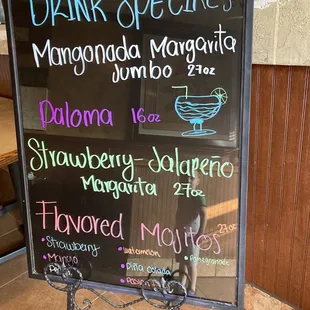 DRINK SPECIALS
Mangonada Margarita
Jumbo 27oz
Paloma 16oz
Strawberry-Jalapeño
Margarita 27oz
Flavored Mojitos 27oz
• Strawberry • watermelon • Pomegranate
• Mango • Piña colada